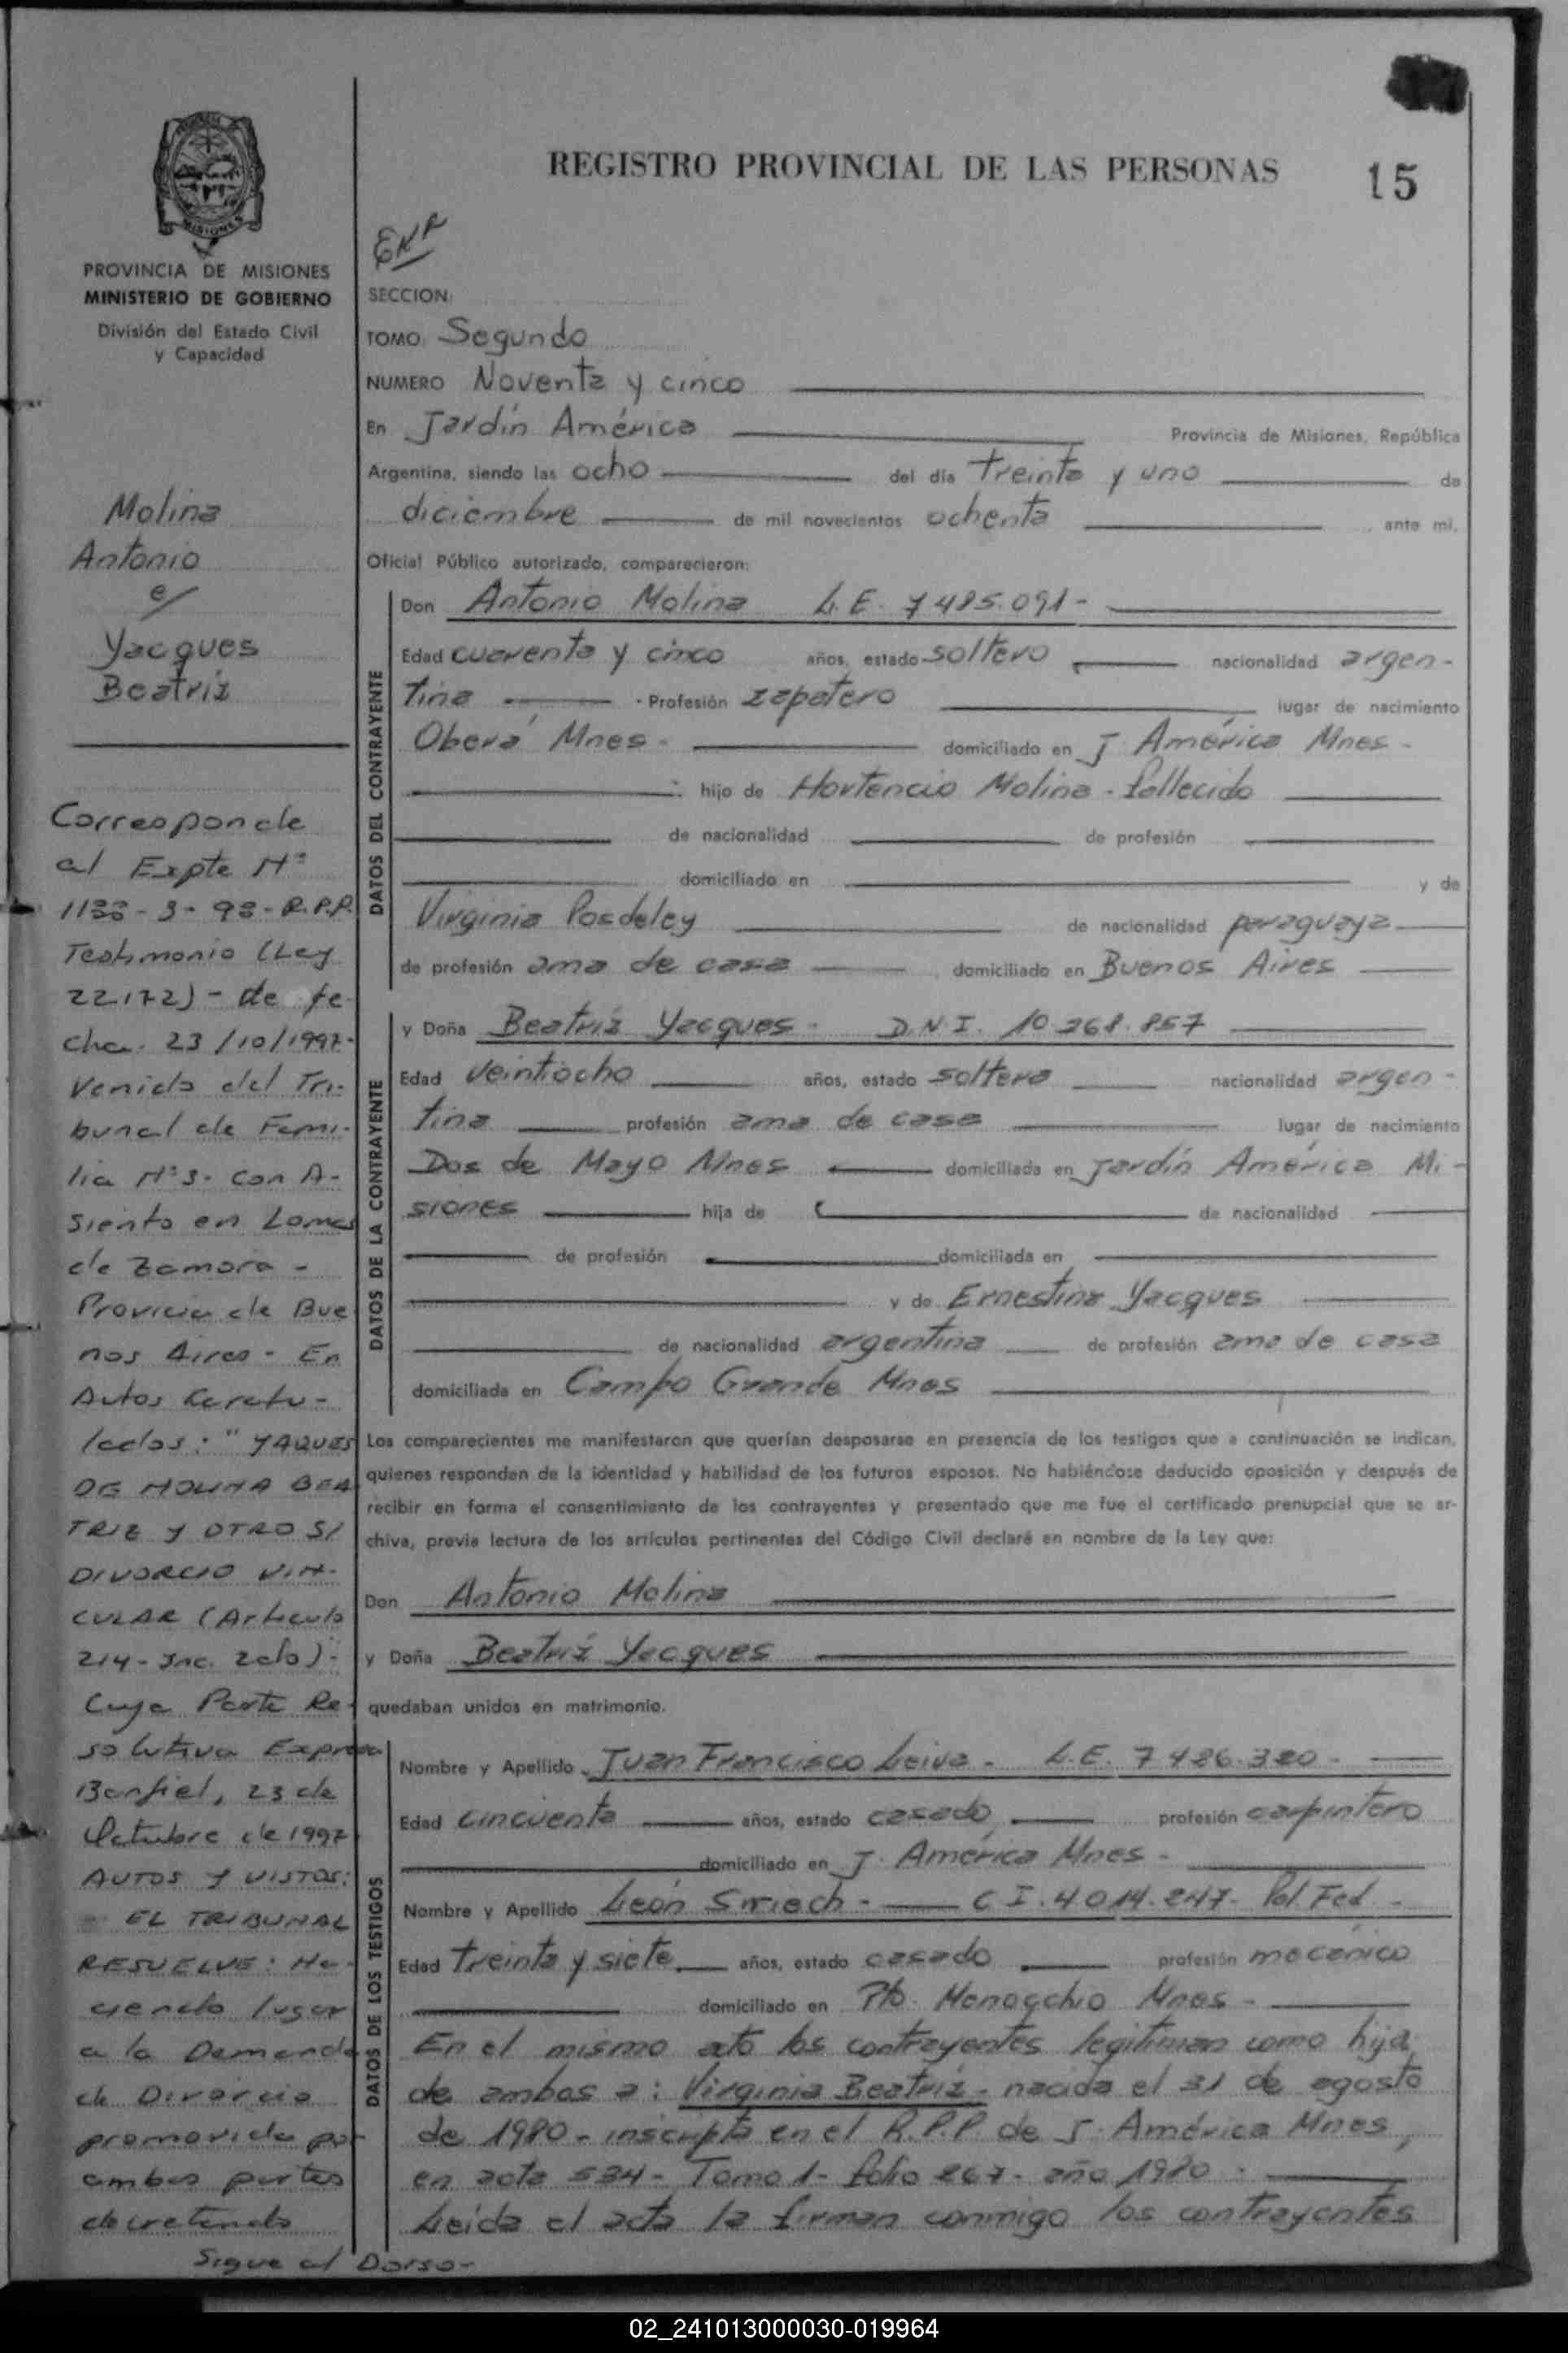 REGISTRO PROVINCIAL DE LAS PERSONAS
15
MISIONES
PROVINCIA DE MISIONES
MINISTERIO DE GOBIERNO
División del Estado Civil
y Capacidad
Molina
Antonio
c/
Yacques
Beatríz
Corresponde
al Expte Nº
R.P.P.
Testimonio (Ley
22172) - de fe-
cha. 23/10/1997-
Venido del Tri-
bunal de Fami-
lia Nº3- Con A-
siento en Lomas
de Zamora -
Provicia de Bue
nos Aires - En
Autos Caratu-
lados: " YAQUES
DE MOLINA BEA
TRIZ y OTRO S/
DIVORCIO VIN-
CULAR (Articulo
214- Inc. 2do)-
Cuya Parte Re-
solutiva Expresa
Banfiel, 23 de
Octubre de 1997
AUTOS Y VISTOS:
EL TRIBUNAL
RESUELVE: Ha-
ciendo lugar
a la Demanda
de Divorcio
promovida por
ambas partes
decretando
Sigue al Dorso-
SECCION:
TOMO: Segundo
NUMERO Noventa y cinco
En Jardín América Provincia de Misiones, República
Argentina, siendo las ocho del día treinta y uno de
diciembre de mil novecientos ochenta ante mí,
Oficial Público autorizado, comparecieron:
DATOS DEL CONTRAYENTE
Don Antonio Molina L.E. 7485.091-
Edad cuarenta y cinco años, estado soltero nacionalidad argen-
tina - Profesión zapatero lugar de nacimiento
Oberá Mnes- domiciliado en J América Mnes-
hijo de Hortencio Molina - fallecido
de nacionalidad de profesión
domiciliado en y de
Virginia Posdeley de nacionalidad paraguaya
de profesión ama de casa domiciliado en Buenos Aires
DATOS DE LA CONTRAYENTE
y Doña Beatríz Yacques- D.N.I. 10.268.857
Edad veintiocho años, estado soltera nacionalidad argen-
tina profesión ama de casa lugar de nacimiento
Dos de Mayo Mnes domiciliada en Jardín América Mi-
siones hija de de nacionalidad
de profesión domiciliada en
y de Ernestina Yacques
de nacionalidad argentina de profesión ama de casa
domiciliada en Campo Grande Mnes
Los comparecientes me manifestaron que querían desposarse en presencia de los testigos que a continuación se indican,
quienes responden de la identidad y habilidad de los futuros esposos. No habiéndose deducido oposición y después de
recibir en forma el consentimiento de los contrayentes y presentado que me fue el certificado prenupcial que se ar-
chiva, previa lectura de los artículos pertinentes del Código Civil declaré en nombre de la Ley que:
Don Antonio Molina
y Doña Beatríz Yacques
quedaban unidos en matrimonio.
DATOS DE LOS TESTIGOS
Nombre y Apellido Juan Francisco Leiva- L.E. 7486.320-
Edad cincuenta años, estado casado profesión carpintero
domiciliado en J. América Mnes-
Nombre y Apellido León C I. 4014.247- Pol. Fed-
Edad treinta y siete años, estado casado profesión mecánico
domiciliado en Pto. Menocchio Mnes-
En el mismo acto los contrayentes legitiman como hija
de ambos a: Virginia Beatríz- nacida el 31 de agosto
de 1980- inscripta en el R.P.P. de J. América Mnes,
en acta 534- Tomo 1- folio 267- año 1980-
Leída el acta la firman conmigo los contrayentes
02_241013000030-019964